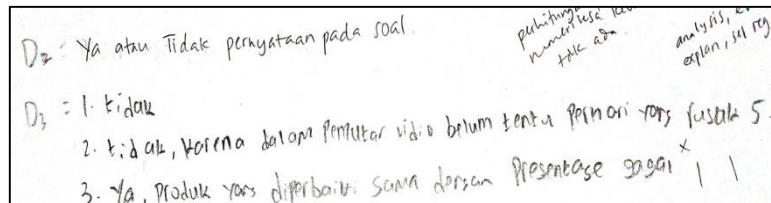 D2 : Ya atau Tidak pernyataan pada soal.
tdk ada
analysis,
explan, sel reg
D3 : 1. tidak
2. tidak, karena dalam pemutar vidio belum tentu permari yang rusak 5.
3. Ya, Produk yang diperbaiki sama dengan Presentase gagal x